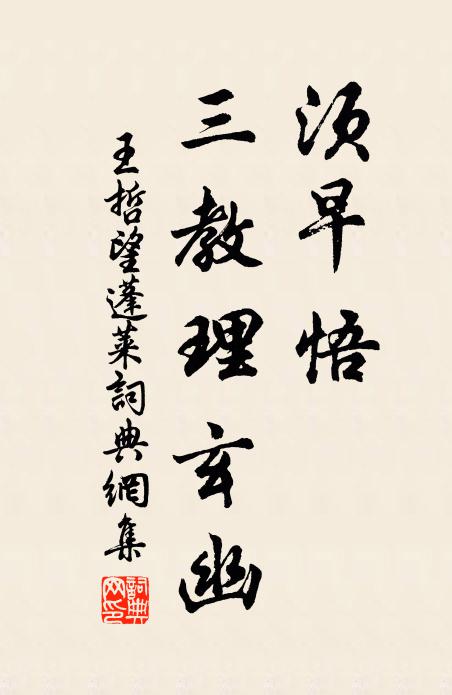 须早悟
三教理玄幽
王哲望蓬莱詞典網集
詞典
网印